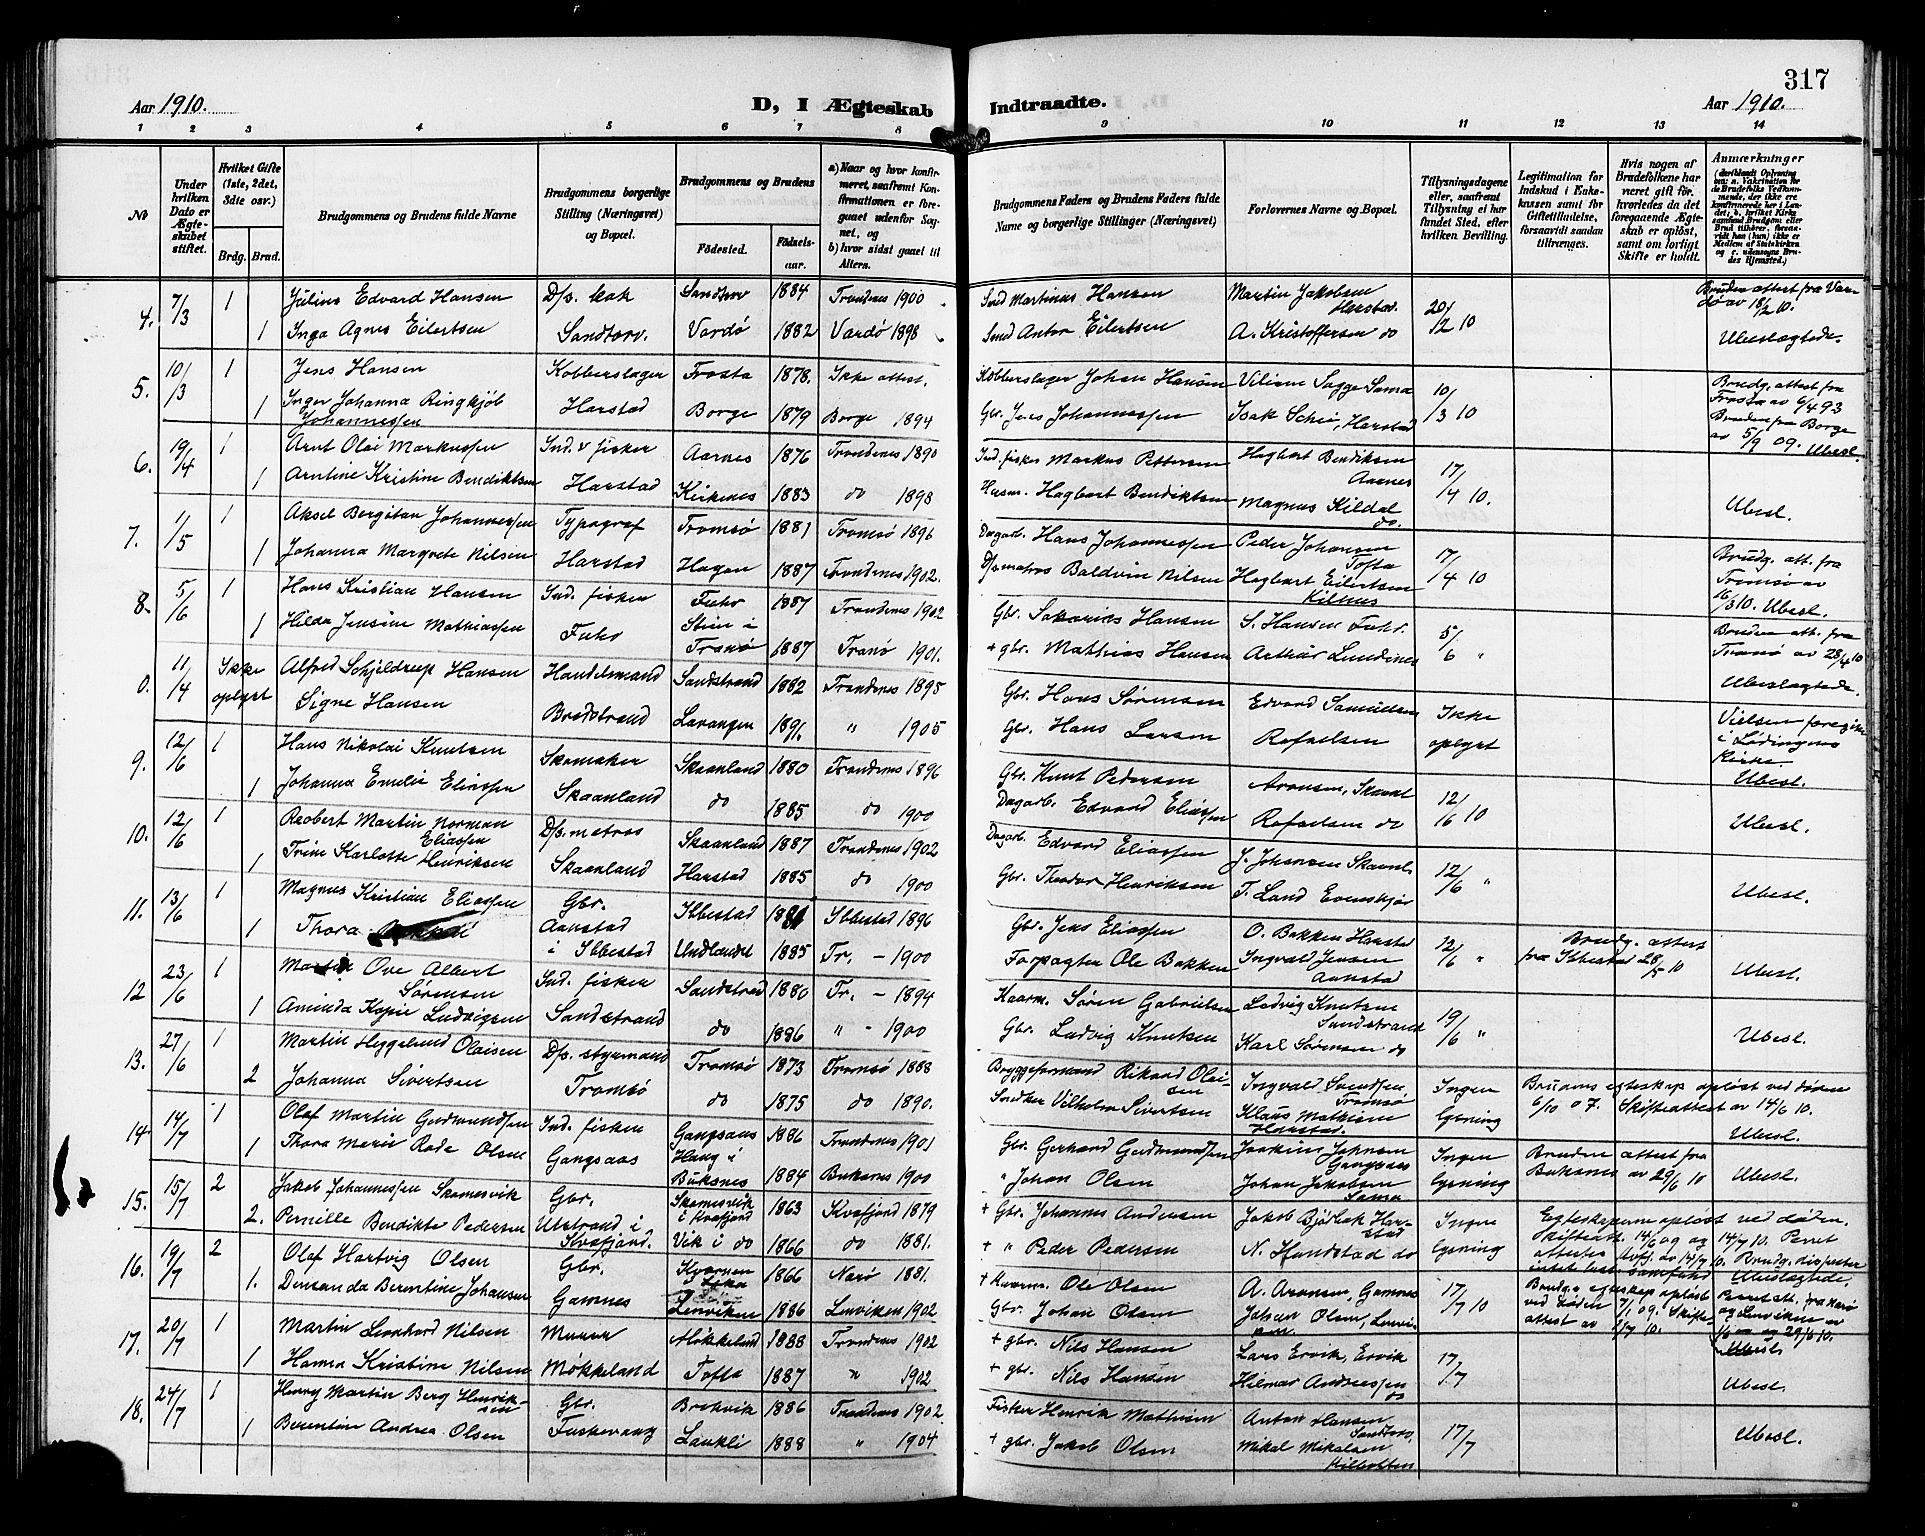 317
Aar 1910.
D, I Ægteskab
Indtraadte.
Aar 1910.
1 2 3 4 5 6 7 8 9 10 11 12 13 14
№
Under hvilken Dato er Ægteskabet stiftet.
Hvilket Gifte (1ste, 2det, 3die osv.)
Brdg. Brud.
Brudgommens og Brudens fulde Navne
Brudgommens borgerlige Stilling (Næringsvei) og Bopæl.
Brudgommens og Brudens
Fødested. Fødselsaar.
a) Naar og hvor konfirmeret, saafremt Konfirmationen er foregaaet udenfor Sognet, og
b) hvor sidst gaaet til Alters.
Brudgommens Faders og Brudens Faders fulde Navne og borgerlige Stillinger (Næringsvei)
Forlovernes Navne og Bopæl.
Tillysningsdagene eller, saafremt Tillysning ei har fundet Sted, efter hvilken Bevilling.
Legitimation for Indskud i Enkekassen samt for Giftetilladelse, forsaavidt saadan tiltrænges.
Hvis nogen af Brudefolkene har været gift før, hvorledes da det foregaaende Ægteskab er opløst, samt om lovligt Skifte er holdt.
Anmærkninger
4. 7/3 1 Julius Edvard Hansen D/s. kok Sandtorv 1884 Trondenes 1900 Smed Martinus Hansen Martin Jakobsen Harstad. 20/2 10 Bruden attest fra Vardø av 18/2 10.
1 Inga Agnes Eilertsen Sandtorv. Vardø 1882 Vardø 1898 Smed Anton Eilertsen A. Kristoffersen do Ubeslægtede.
5. 10/3 1 Jens Hansen Kobberslager Frosta 1878. Ikke attest. Kobberslager Johan Hansen Viliam Sagge Sama 10/3 10 Brudg. attest fra Frosta av 6/4 93
1 Inger Johanna Ringkjøb Johannessen Harstad Borge 1879 Borge 1894 Gbr. Jens Johannessen Isak Schei, Harstad Bruden fra Borge av 5/9 09. Ubesl.
6. 19/4 1 Arnt Olai Markussen Ind. v fisker Aarnes 1876 Trondenes 1890 Ind. fisker Markus Pettersen Hagbart Bendiksen Aarnes 17/4 10.
1 Arntine Kristine Bendiktsen Harstad Kirkenes 1883 do 1898 Husm. Hagbart Bendiktsen Magnus Kildal do. Ubesl.
7. 1/5 1 Aksel Bergitan Johannessen Typograf Tromsø 1881 Tromsø 1896 Dagarb. Hans Johannessen Peder Johansen Tofta 17/4 10 Brudg. att. fra Tromsø av 16/3 10. Ubesl.
1 Johanna Margrete Nilsen Harstad Hagan 1887 Trondenes 1902. D/s matros Baldvin Nilsen Hagbart Eilertsen Kilhus
8. 5/6 1 Hans Kristian Hansen Ind. fisker Fuhr 1887 Trondenes 1902 Gbr. Sakarias Hansen S. Hansen Fuhr. 5/6 " Bruden att. fra Tranø av 28/4 10
1 Hilda Jensine Mathiassen Fuhr Stien i Tranø 1887 Tranø 1901. + gbr. Mathias Hansen Arthur Lundenes Ubeslægtede.
0. 11/4 Ikke oplyst Alfred Schjeldrup Hansen Handelsmand Sandstrand 1882 Trondenes 1895 Gbr. Hans Sørensen Edvard Samuelsen Ikke oplyst Vielsen foregik i Lødingens Kirke.
Signe Hansen Bredstrand Lavangen 1891. " 1905 Gbr. Hans Larsen Rafaelsen Ubesl.
9. 12/6 1 Hans Nikolai Knutsen Skomaker Skaanland 1880 Trondenes 1896 Gbr. Knut Pedersen Aronsen, Skaanl 12/6 10
1 Johanna Emelie Eliassen Skaanland do 1885 do 1900 Dagarb. Edvard Eliassen Rafaelsen do Ubesl.
10. 12/6 1 Robert Martin Norman Eliassen D/s. matros Skaanland 1887 Trondenes 1902 Dagarb. Edvard Eliassen J. Johansen Skaanl. 12/6 "
1 Trine Karlotte Henriksen Skaanland Harstad 1885 do 1900 Gbr. Theodor Henriksen T. Land Evenskjær Ubesl.
11. 13/6 1 Magnus Kristian Eliassen Gbr. Ibbestad 1881 Ibbestad 1896 Gbr. Jens Eliassen O. Bakken Harstad 12/6 " Brudg. attest fra Ibbestad 28/5 10
1 Thora Aanstad i Ibbestad Undlandet 1885 Tr. - 1900 Forpagter Ole Bakken Ingvald Jensen Aanstad Ubesl.
12 23/6 1 Martin Ove Albert Sørensen Ind. fisker Sandstrad 1880 Tr. - 1894 Kaarm. Søren Gabrielsen Ludvig Knutsen Sandstrand 19/6 "
1 Aminda Kopie Ludvigsen Sandstrand do 1886 " - 1900 Gbr. Ludvig Knutsen Karl Sørensen do Ubesl.
13. 27/6 1 Martin Hyggelund Olaisen D/s. styrmand Tromsø 1873 Tromsø 1888 Bryggeformand Rikard Olaisen Ingvald Svendsen Tromsø Ingen lysning Brudens egteskap opløst ved døden 6/10 07. Skifteattest av 14/6 10.
2 Johanna Sivertsen Tromsø do 1875 do 1890. Snedker Vilhelm Sivertsen Klaus Mathisen Harstad. Ubesl.
14. 14/7 1 Olaf Martin Gudmundsen Ind. fisker Gangsaas 1886 Trondenes 1901 Gbr. Gerhard Gudmundsen Joakim Johnsen Gangsaas Ingen lysning Bruden attest fra Buksnes av 29/6 10
1 Thora Marie Rode Olsen Gangsaas Haug i Buksnes 1884 Buksnes 1900 " Johan Olsen Johan Jakobsen Sama Ubesl.
15. 15/7 2 Jakob Johannessen Skomesvik Gbr. Skomesvik i Kvæfjord 1863 Kvæfjord 1879 + Gbr. Johannes Andersen Jakob Bjørbak Harstad Ingen lysning Egteskaperne opløst ved døden. Skifteatt. 14/6 09 og 14/7 10.
2. Pernille Bendikte Pedersen Utstrand i Kvæfjord. Vik i do 1866 do 1881. + " Peder Pedersen N. Hundstad do Ubeslægtede.
16. 19/7 2 Olaf Hartvig Olsen Gbr. 1866 Narø 1881. + Kvarm. Ole Olsen A. Aronsen, Gamnes 17/7 10 Brudg. egteskap opløst ved døden 7/1 09. Skifteattest av 1/7 10.
1. Densanda Berentine Johansen Gamnes Lenviken 1886 Lenviken 1902 Gbr. Johan Olsen Johan Olsen, Lenviken
17. 20/7 1 Martin Leonhard Nilsen Murer Møkkeland 1888 Trondenes 1902 + gbr. Nils Hansen Lars Ervik, Ervik 17/7
1 Hanna Kristine Nilsen Møkkeland Tofta 1887 " 1902 + gbr. Nils Hansen Hilmar Andreassen do Ubesl.
18. 24/7 1 Henry Martin Berg Henriksen Gbr. Brekvik 1886 Trondenes 1902. Fisker Henrik Mathisen Anton Hansen Sandtorv, 17/7
1 Berentin Andrea Olsen Fuskevaag Laukli 1888 " 1904 + gbr. Jakob Olsen Mikal Mikalsen Kilbotten Ubesl.